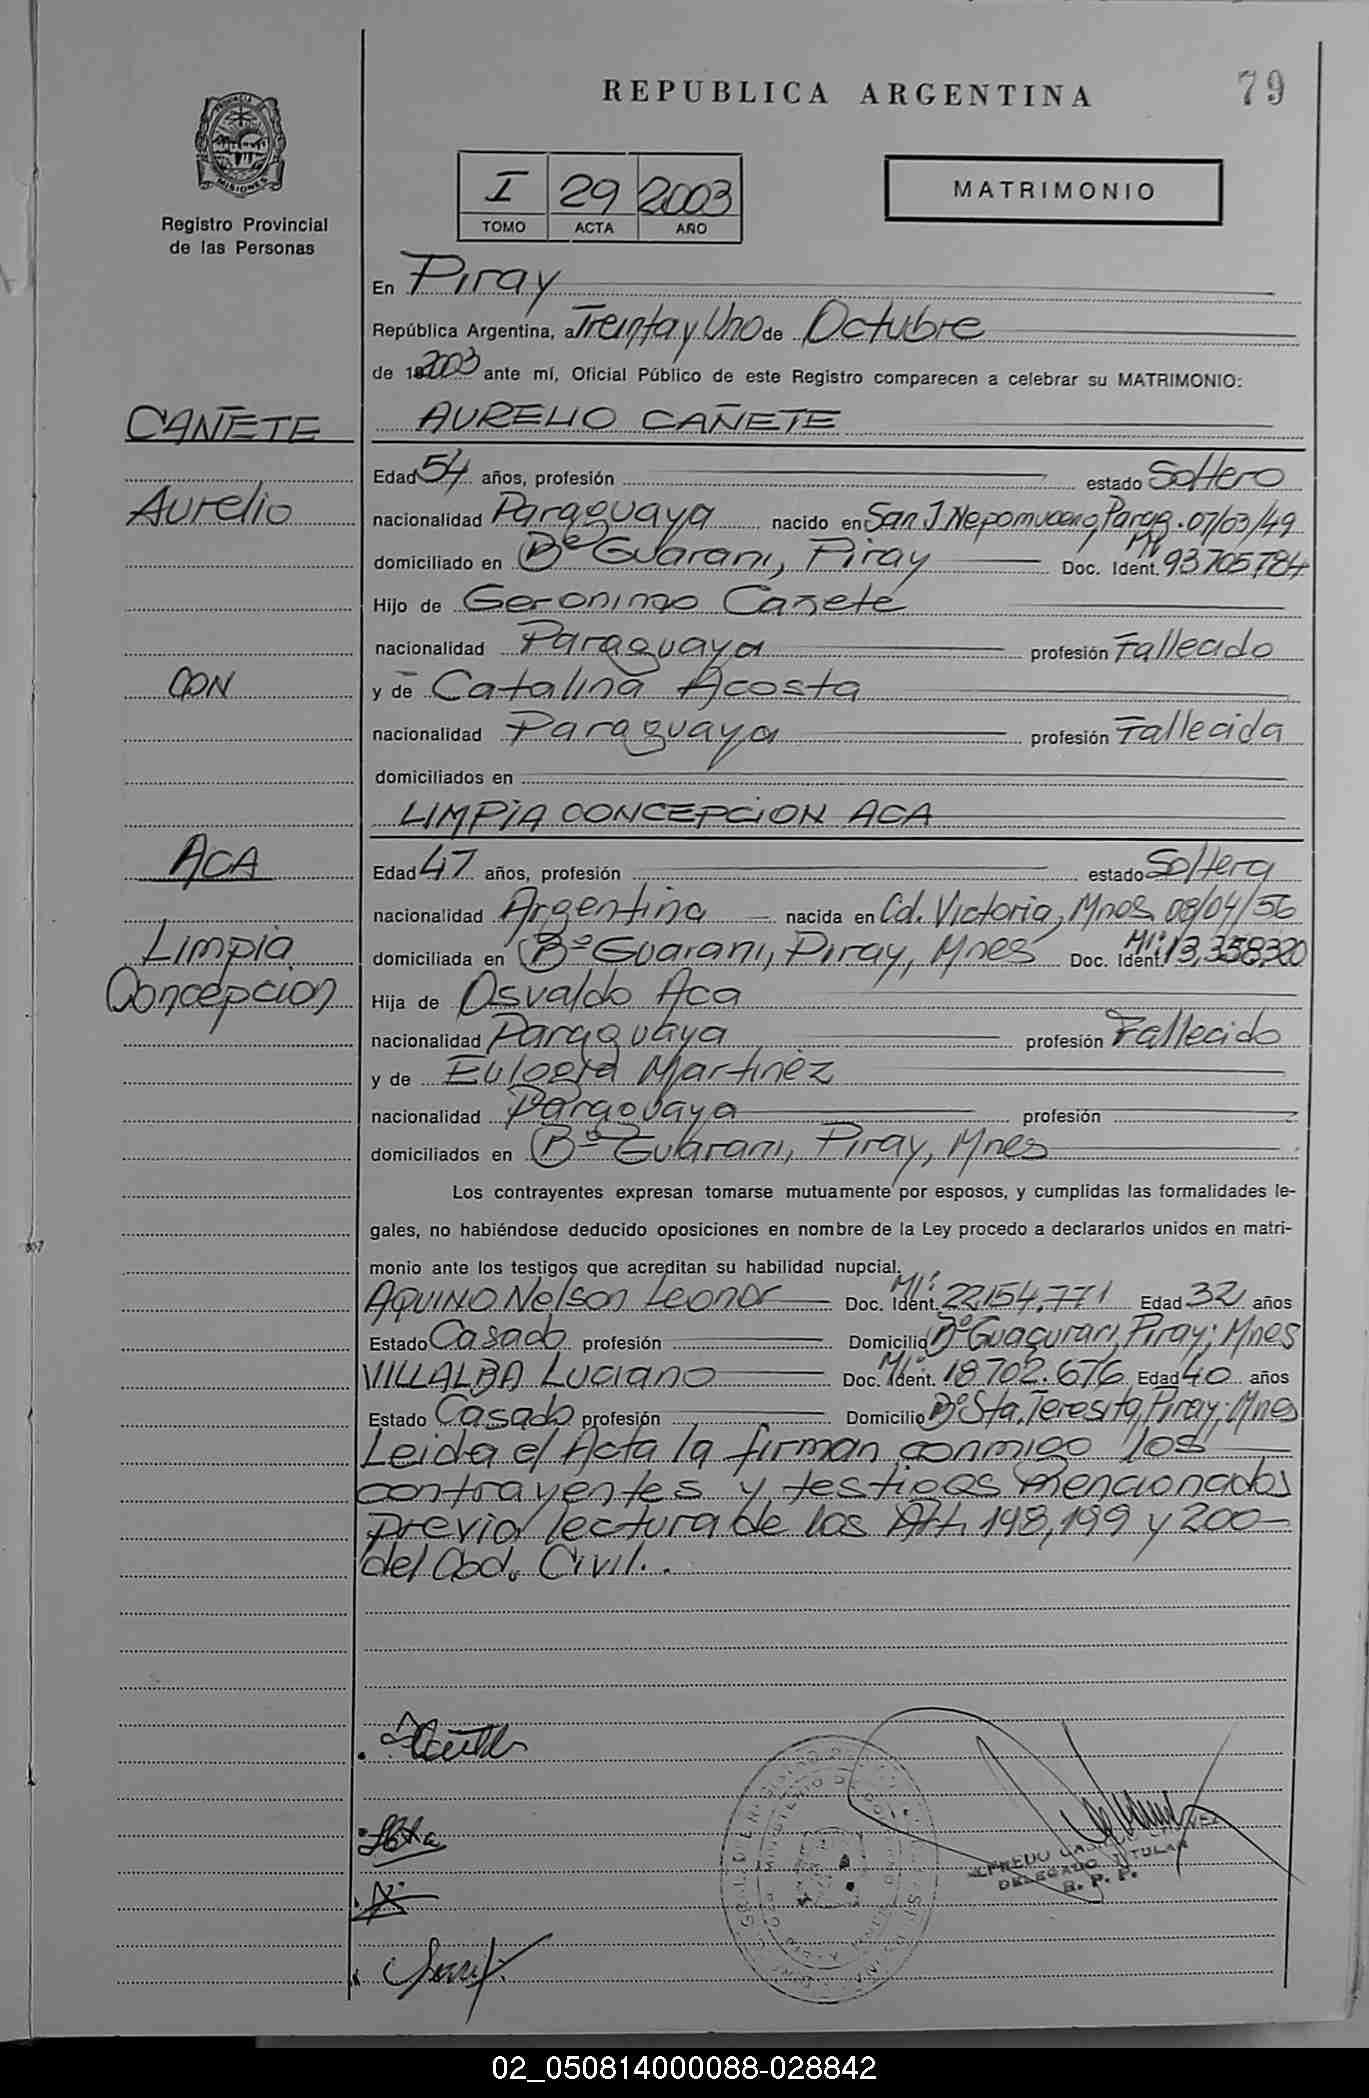 REPUBLICA ARGENTINA
79
PROVINCIA DE
MISIONES
Registro Provincial
de las Personas
I 29 2003
TOMO ACTA AÑO
MATRIMONIO
En Piray
República Argentina, a Treinta y Uno de Octubre
de 2003 ante mí, Oficial Público de este Registro comparecen a celebrar su MATRIMONIO:
CAÑETE
AURELIO CAÑETE
Edad 54 años, profesión estado Soltero
Aurelio
nacionalidad Paraguaya nacido en San J. Nepomuceno, Parag. 07/03/49
domiciliado en Bº Guarani, Piray Doc. Ident. 93705784
Hijo de Geronimo Cañete
nacionalidad Paraguaya profesión Fallecido
CON
y de Catalina Acosta
nacionalidad Paraguaya profesión Fallecida
domiciliados en
LIMPIA CONCEPCION ACA
ACA
Edad 47 años, profesión estado Soltera
nacionalidad Argentina nacida en Cd. Victoria, Mnes 08/04/56
Limpia
domiciliada en Bº Guarani, Piray, Mnes Doc. Ident. MIº 13.358.320
Concepcion
Hija de Osvaldo Aca
nacionalidad Paraguaya profesión Fallecido
y de Eulogia Martinez
nacionalidad Paraguaya profesión
domiciliados en Bº Guarani, Piray, Mnes
Los contrayentes expresan tomarse mutuamente por esposos, y cumplidas las formalidades le-
gales, no habiéndose deducido oposiciones en nombre de la Ley procedo a declararlos unidos en matri-
monio ante los testigos que acreditan su habilidad nupcial.
AQUINO Nelson Leonor Doc. Ident. MIº 22.154.771 Edad 32 años
Estado Casado profesión Domicilio Bº Guaçurari, Piray; Mnes
VILLALBA Luciano Doc. Ident. MIº 18.702.676 Edad 40 años
Estado Casado profesión Domicilio Bº Sta. Teresita, Piray; Mnes
Leida el Acta la firman conmigo los
contrayentes y testigos mencionados
previa lectura de los Att. 198, 199 y 200
del Cod. Civil..
DELEGADO TITULAR
R. P. P.
02_050814000088-028842